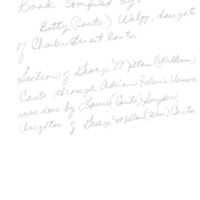 Book Compiled by:
Betty (Couts) Wolff, daughter
of Charles Grant Couts
Section of George Milton (William)
Couts through Adrian Nelson Vernon
was done by Laura (Couts) Snyder,
daughter of George Milton (Wm) Couts